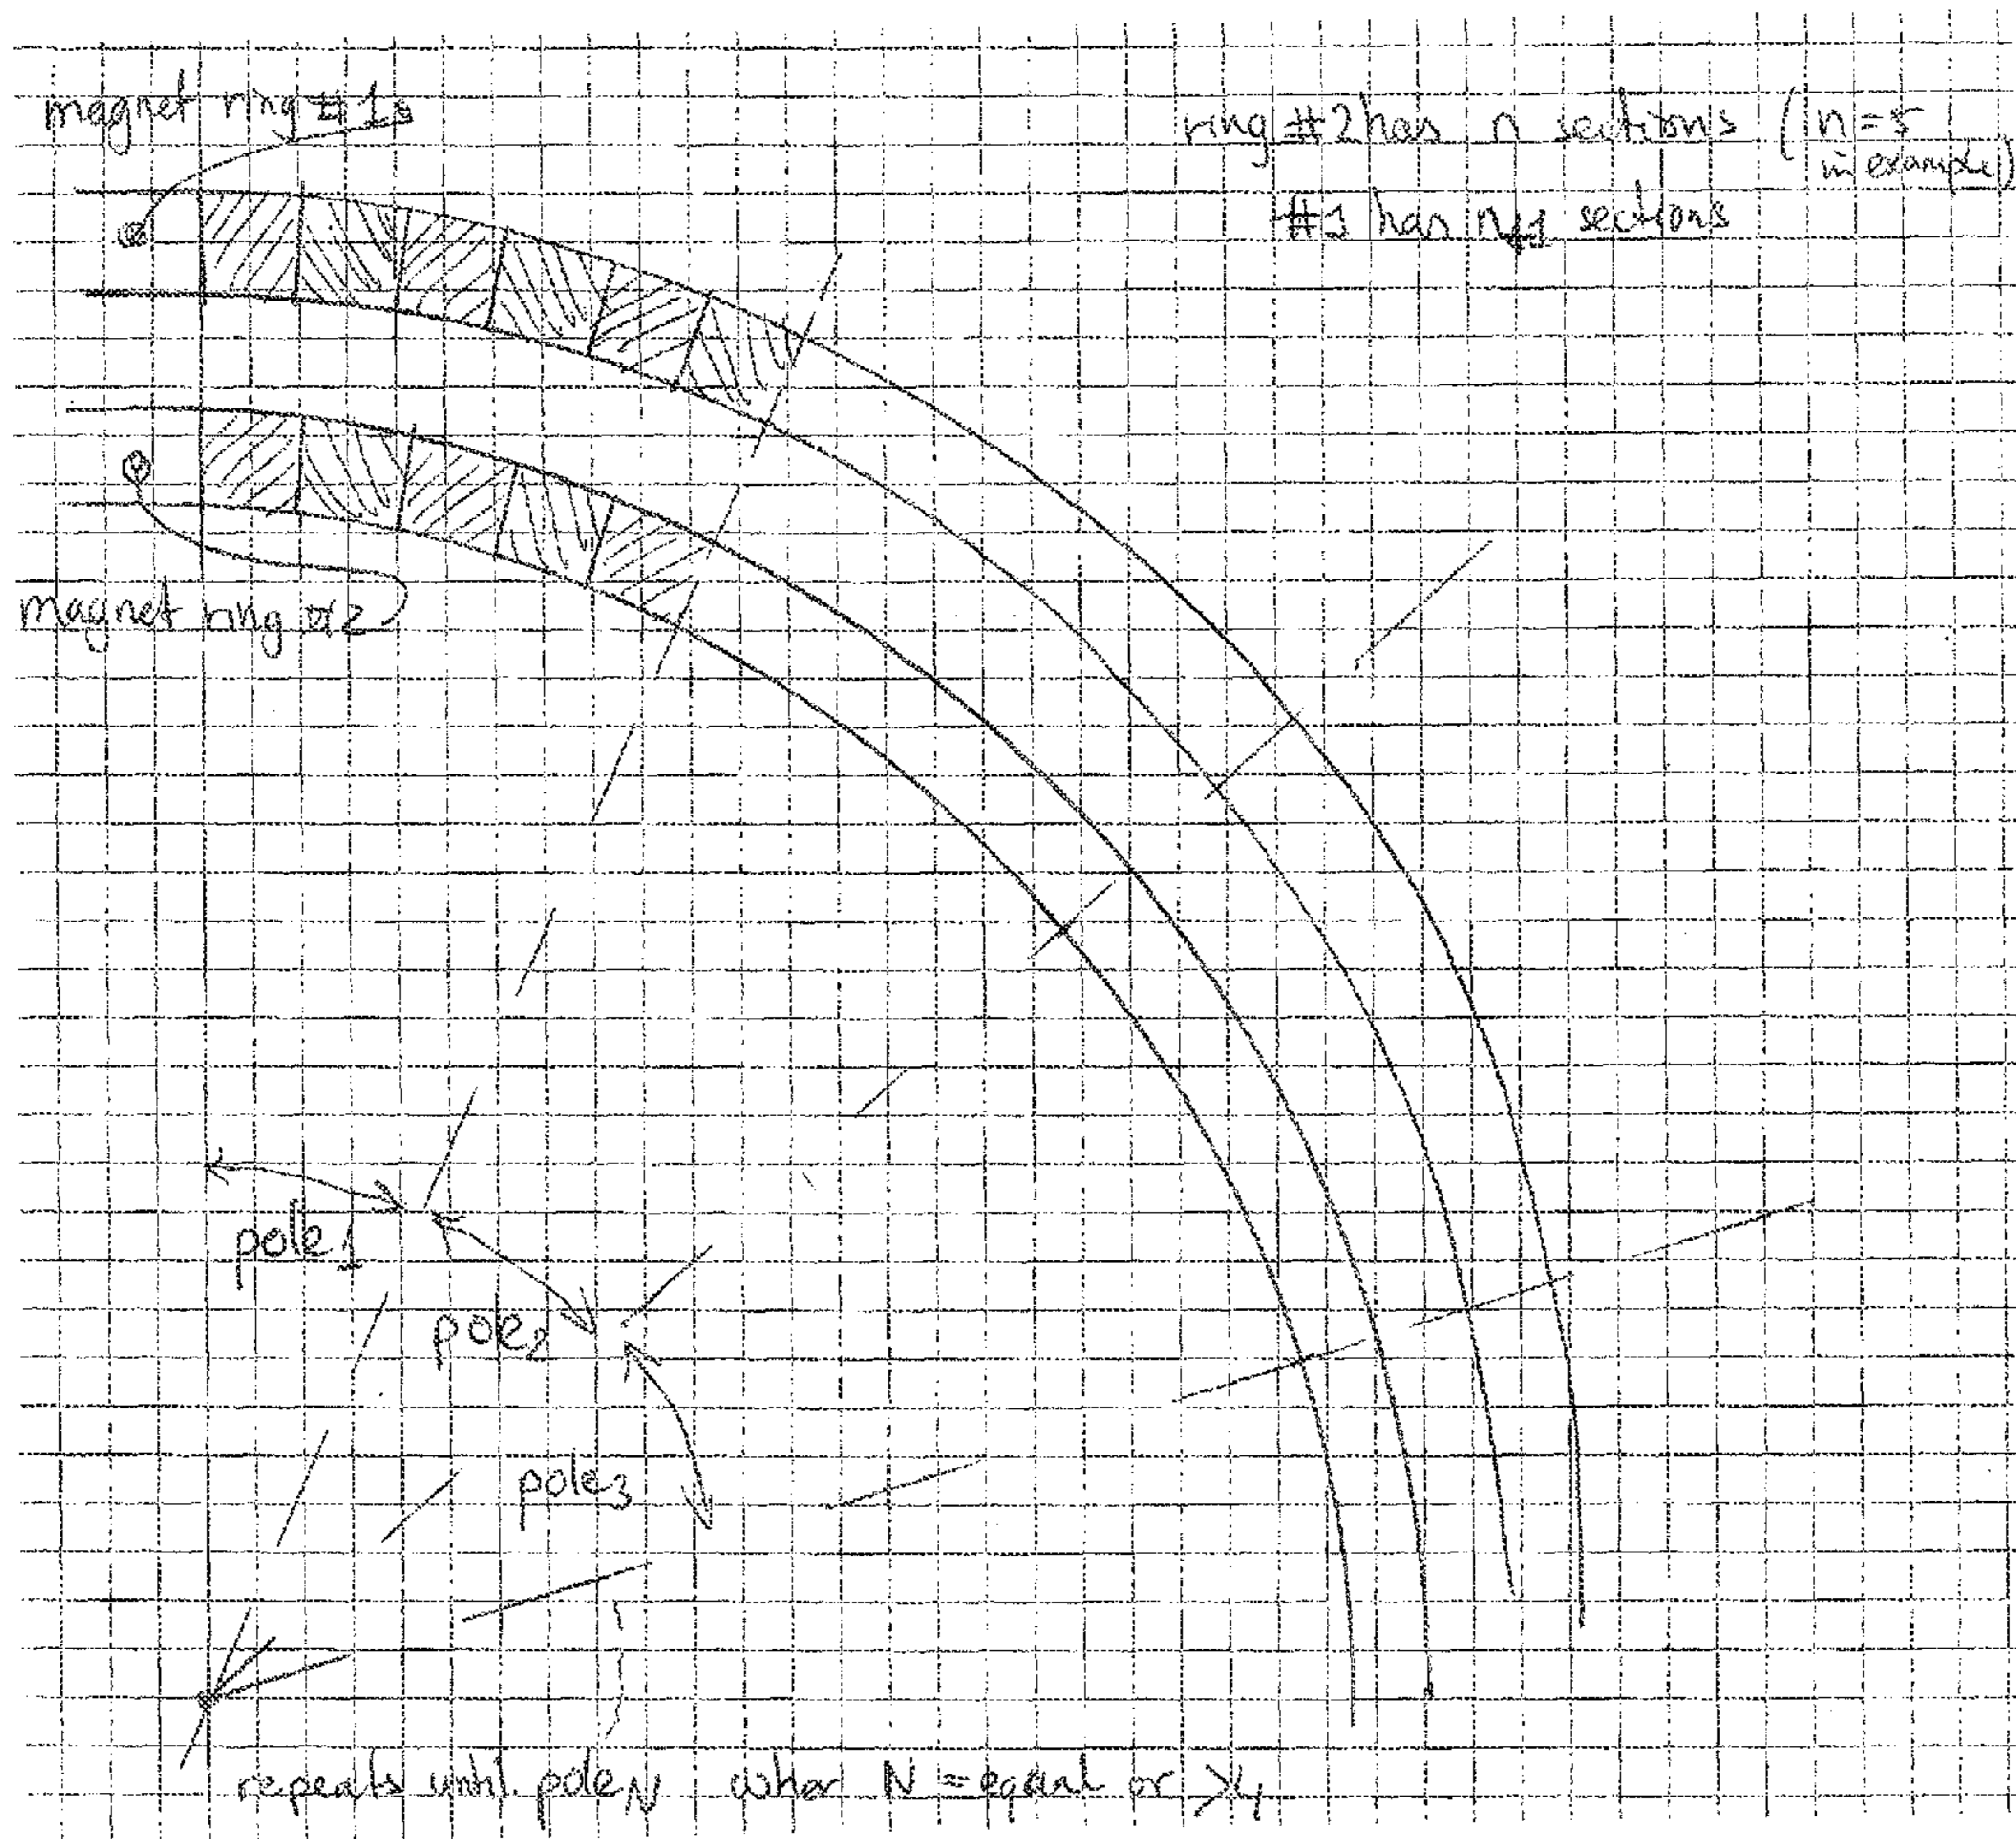 magnet ring #1
ring #2 has n sections (n=5
in example)
#1 has n+1 sections
magnet ring #2
pole 1
pole 2
pole 3
repeats until pole N when N = equal or >4